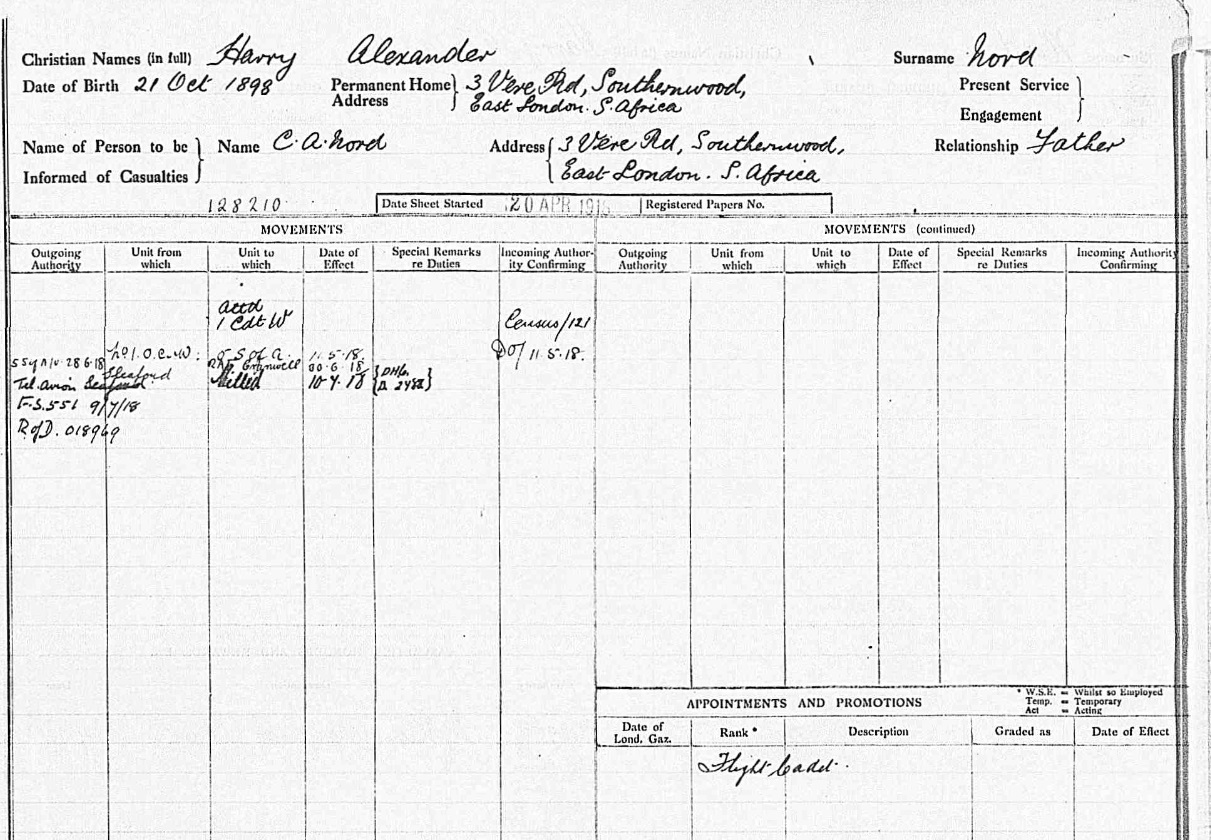 Christian Names (in full) Harry Alexander Surname Nord
Date of Birth 21 Oct 1898 Permanent Home Address 3 Vere Rd, Southernwood, East London. S. Africa Present Service Engagement
Name of Person to be Informed of Casualties Name C. A. Nord Address 3 Vere Rd, Southernwood, East London. S. Africa Relationship Father
128210 Date Sheet Started 20 APR 191 Registered Papers No.
MOVEMENTS MOVEMENTS (continued)
Outgoing Authority Unit from which Unit to which Date of Effect Special Remarks re Duties Incoming Authority Confirming Outgoing Authority Unit from which Unit to which Date of Effect Special Remarks re Duties Incoming Authority Confirming
attd
1 Cdt W Census/121
No 1. O.C.W. S of A. 11.5.18. DO/ 11.5.18.
28.6.18 Sleaford 6.18
Killed 10.7.18
F.S.551 9/7/18
R of D. 018969
* W.S.E. = Whilst so Employed
Temp. = Temporary
Act = Acting
APPOINTMENTS AND PROMOTIONS
Date of Lond. Gaz. Rank * Description Graded as Date of Effect
Flight Cadet.